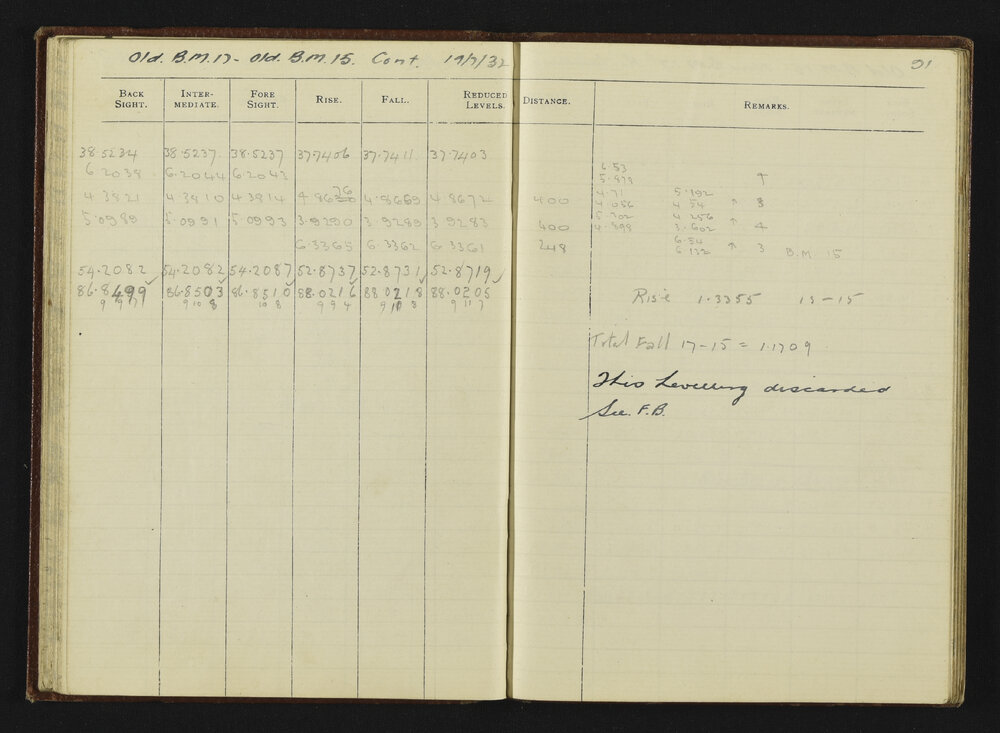 Old. B.M. 17 - Old. B.M. 15. Cont. 19/7/32
BACK SIGHT. INTER-MEDIATE. FORE SIGHT. RISE. FALL. REDUCED LEVELS. DISTANCE. REMARKS.
38.5234 38.5237 38.5237 37.7406 37.7411 37.7403
6.53
6.2039 6.2044 6.2043 5.878 ↑
4.3821 4.3810 4.3814 4.8669 4.8672 400 4.71 5.192
4.056 4.54 ↑ 3
5.0989 5.0991 5.0993 3.9290 3.9289 3.9283 5.202 4.256 ↑
400 4.898 3.602 4
6.3365 6.3362 6.3361 248 6.54 ↑ 3 B.M. 15
6.132
54.2082 54.2082 54.2087 52.8737 52.8731 52.8719
86.8499 86.8503 86.8510 88.0216 88.0218 88.0205
9 9 7 9 10 8 10 8 9 9 4 9 10 8 9 11 7
Rise 1.3355 15-15
Total Fall 17-15 = 1.1709
This Levelling discarded
See. F.B.